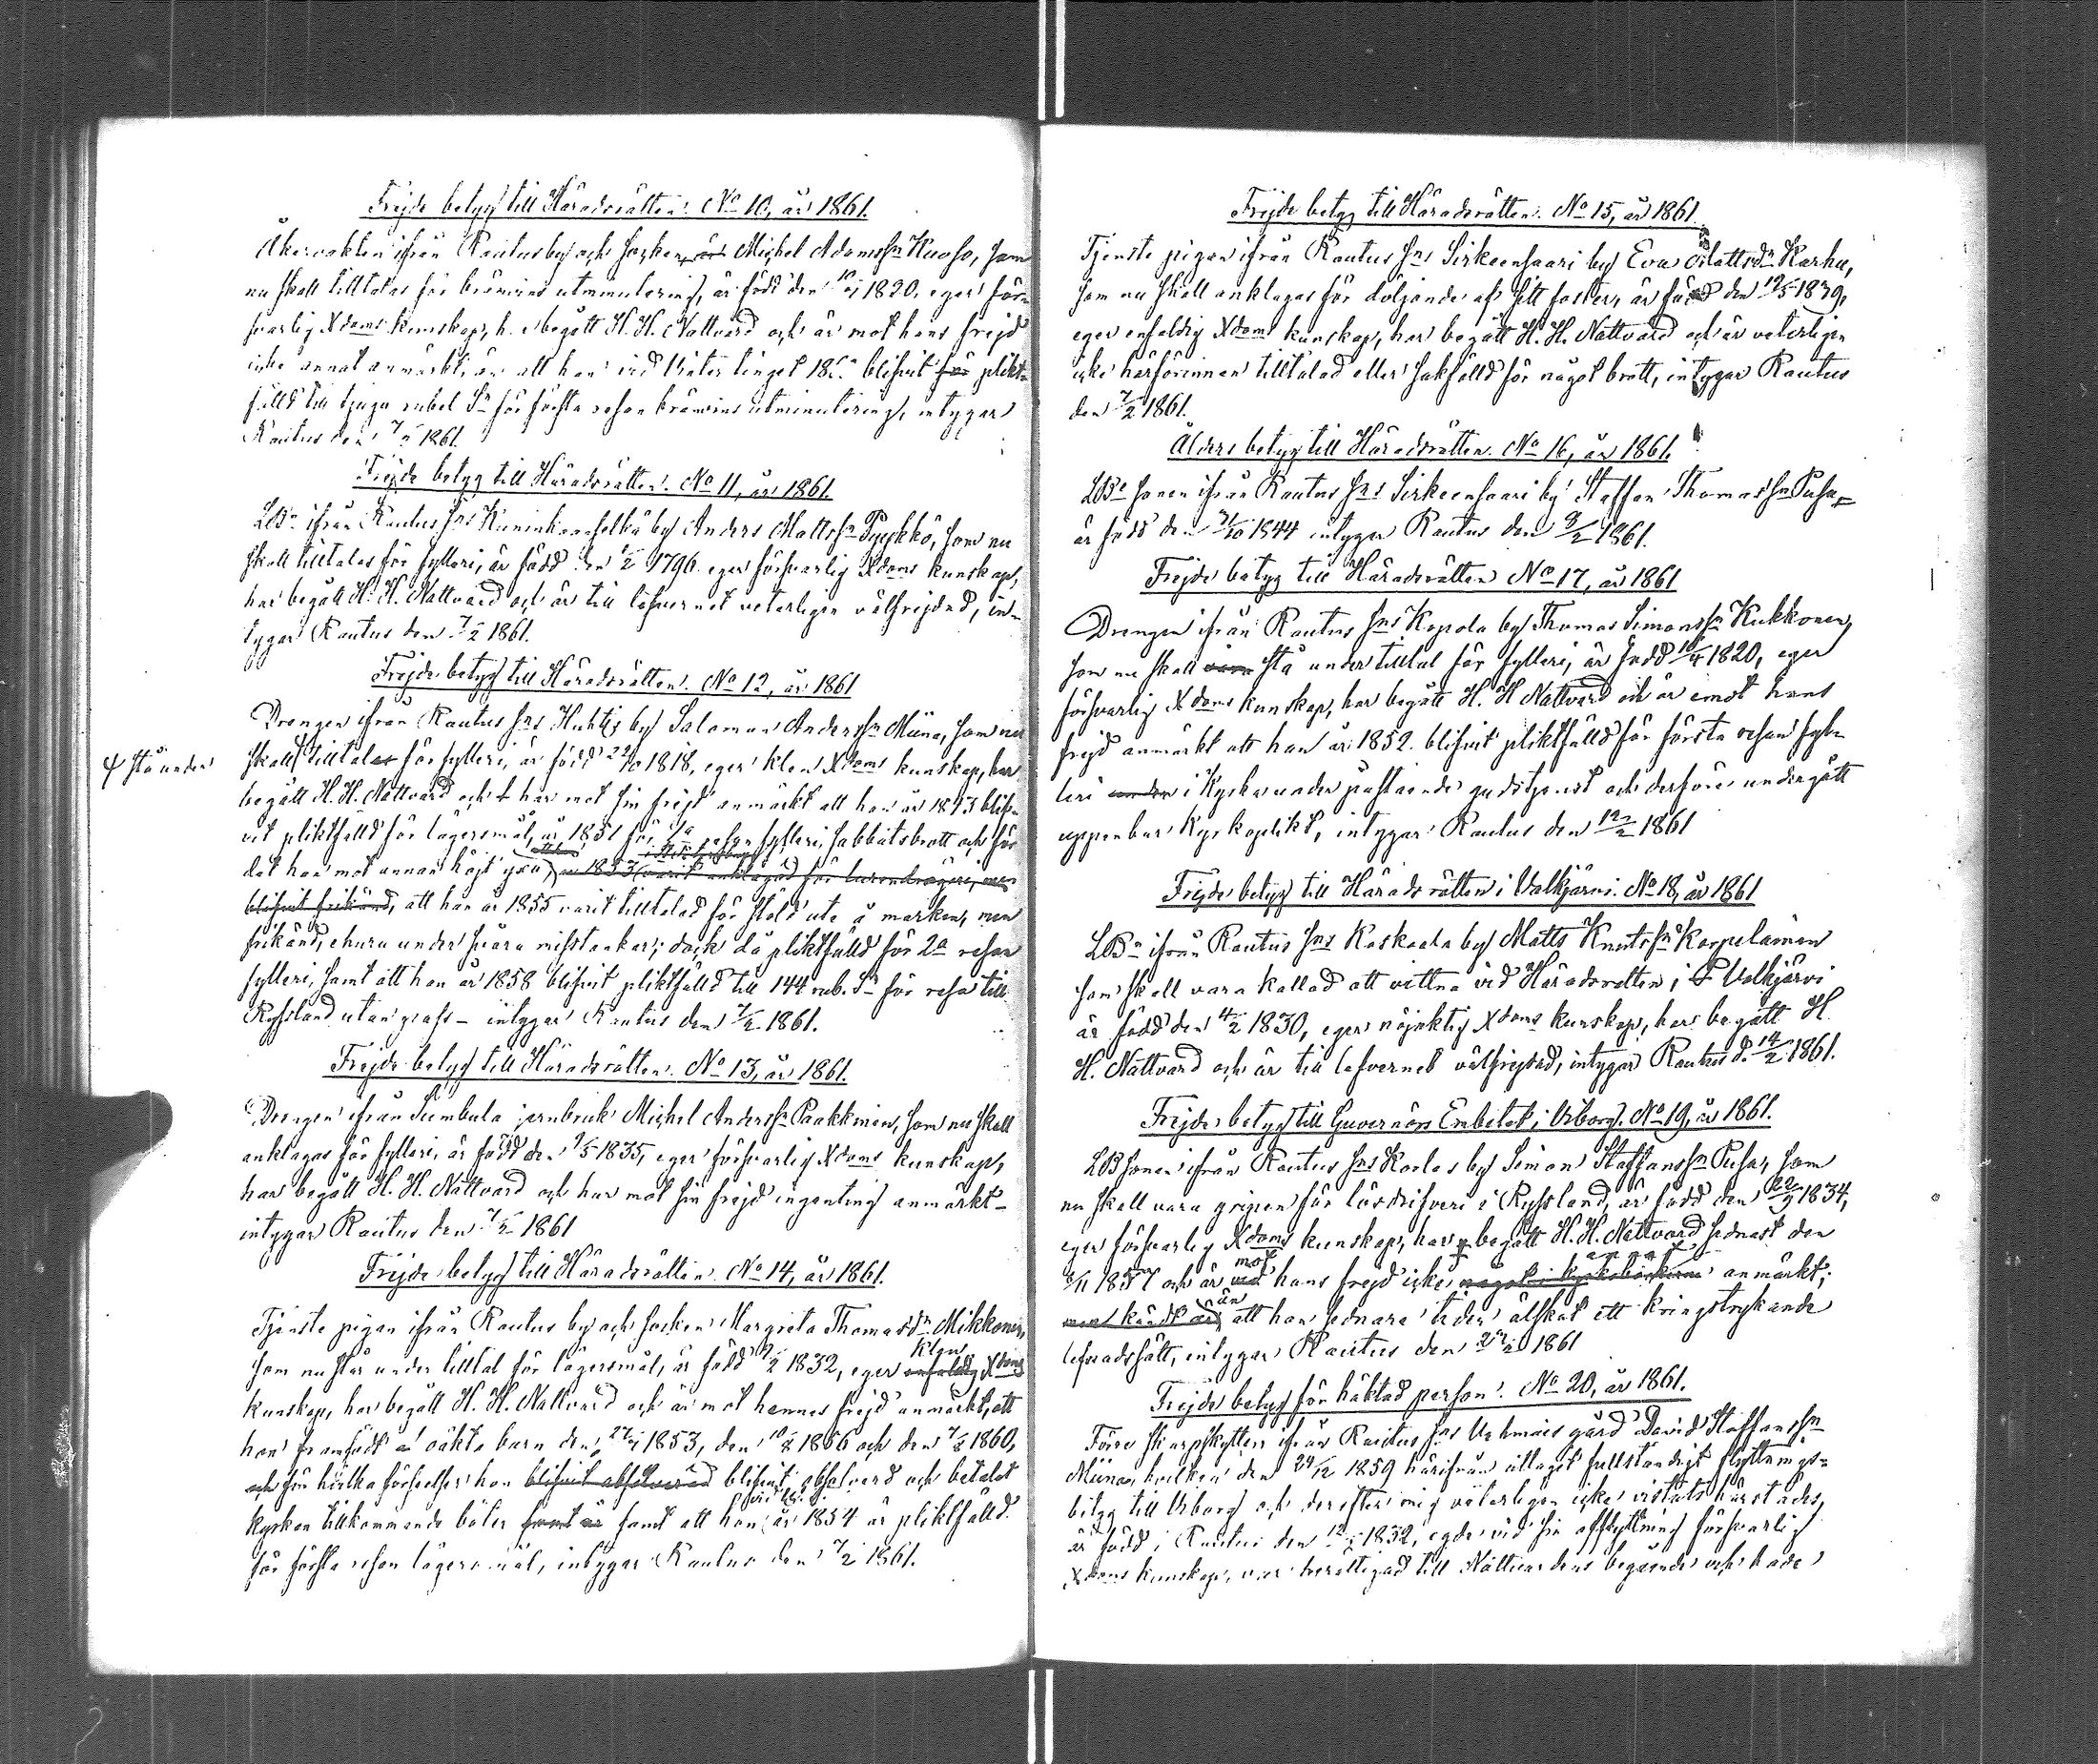 Frejde betyg till Häradsrätten. No 10, år 1861.
Åkervakten ifrån Rautus by och socken, är Michel Adamssn Kuosa, som
nu skall tilltalas för bränvins utminutering, är född den 1820. eger för-
svarlig Xdoms kunskap, h. begått H. H. Nattvard och är mot hans frejd
icke annat anmärkt, än att han vid Vinter tinget blifvit för plikt-
fälld till tjugu rubel Sr för första resan bränvins utminutering, intygar
Rautus den 7/2 1861.
Frejde betyg till Häradsrätten. No 11, år 1861.
LBn ifrån Rautus sns Kuninkaanselkä by Anders Mattssn Pyykkö, som nu
skall tilltalas för fylleri, är född den 1796. eger försvarlig Xdoms kunskap,
har begått H. H. Nattvard och är till lefvernet veterligen välfrejdad, in-
tygar Rautus den 7/2 1861.
Frejde betyg till Häradsrätten. No 12, år 1861
Drengen ifrån Rautus sns Huhti by Salomon Anderssn Miina, som nu
stå under
skall tilltalas för fylleri, är född 1818, eger klen Xdoms kunskap, har
begått H. H. Nattvard och har mot sin frejd anmärkt att han år 1843 blif-
vit pliktfälld för lägersmål, år 1851 för 1a resan fylleri, sabbatsbrott och för
det han mot annan höjt yxa, år 1853 varit anklagad för lurendrägeri, men
blifvit frikänd, att han år 1855 varit tilltalad för stöld ute å marken, men
frikänd, ehuru under svåra misstankar; dock då pliktfälld för 2a resan
fylleri, samt att han år 1858 blifvit pliktfälld till 144 rub. Sr för resa till
Ryssland utan pass – intygar Rautus den 7/2 1861.
Frejde betyg till Häradsrätten. No 13, år 1861.
Drengen ifrån Sumbula jernbruk Michel Anderssn Paakkinen, som nu skall
anklagas för fylleri, är född den 1835, eger försvarlig Xdoms kunskap,
har begått H. H. Nattvard och har mot sin frejd ingenting anmärkt –
intygar Rautus den 7/2 1861
Frejde betyg till Häradsrätten. No 14, år 1861.
Tjenste pigan ifrån Rautus by och socken Margreta Thomasdr Mikkonen,
som nu står under tilltal för lägersmål, är född 1832, eger enfaldig klen Xdoms
kunskap, har begått H. H. Nattvard och är mot hennes frejd anmärkt, att
hon framfödt oäkta barn den 1853, den 1856 och den 1860,
och för hvilka förseelser hon blifvit absolverad blifvit absolverd och betalat
kyrkan tillkommande böter samt är samt att hon år 1854 är pliktfälld
för första resan lägersmål, intygar Rautus den 7/2 1861.
Frejde betyg till Häradsrätten. No 15, år 1861.
Tjenste pigan ifrån Rautus sns Sirkeensaari by Eva Mattsdr Karhu,
som nu skall anklagas för döljande af sitt foster, är född den 12/5 1839,
eger enfaldig Xdoms kunskap, har begått H. H. Nattvard och är veterligen
icke härförinnan tilltalad eller sakfälld för något brott, intygar Rautus
den 7/2 1861.
Ålders betyg till Häradsrätten. No 16, år 1861.
LBe sonen ifrån Rautus sns Sirkeensaari by Staffan Thomassn Pusa,
är född den 21/10 1844 intygar Rautus den 9/2 1861.
Frejde betyg till Häradsrätten No 17, år 1861
Drengen ifrån Rautus sns Kopola by Thomas Simonssn Kukkonen,
som nu skall vara stå under tilltal för fylleri, är född 1820, eger
försvarlig Xdoms kunskap, har begått H. H Nattvard och är emot hans
frejd anmärkt att han år 1852. blifvit pliktfälld för första resan fyl-
leri under i Kyrka under påstående gudstjenst och derföre undergått
uppenbar Kyrkoplikt, intygar Rautus den 12/2 1861
Frejde betyg till Häradsrätten i Valkjärvi. No 18, år 1861
LBn ifrån Rautus sns Kaskaala by Matts Knutssn Karpelainen
som skall vara kallad att vittna vid Häradsrätten i Valkjärvi
är född den 4/2 1830, eger nöjaktig Xdoms kunskap, har begått H.
H. Nattvard och är till lefvernet välfrejdad, intygar Rautus d. 14/2 1861.
Frejde betyg till Guvernörs Embetet i Viborg. No 19, år 1861.
LBsonen ifrån Rautus sns Korles by Simon Staffanssn Pusa, som
nu skall vara gripen för lösdrifveri i Ryssland, är född den 22/9 1834,
eger försvarlig Xdoms kunskap, har begått H. H. Nattvard sednast den
1857 och är vid mot hans frejd icke något i kyrkoböckerne annat anmärkt;
men kändt är, än att han sednare tider älskat ett kringstrykande
lefnadssätt, intygar Rautus den 1861
Frejde betyg för häktad person. No 20, år 1861.
Förre skarpskytten ifrån Rautus sns gård David Staffanssn
Miina, hvilken den 29/12 1859 härifrån uttagit fullständigt flyttnings-
betyg till Viborg och derefter mig veterligen icke vistats härstädes,
är född i Rautus den 1832, egde vid sin afflyttning försvarlig
Xdoms kunskap, var berättigad till Nattvardens begående och hade